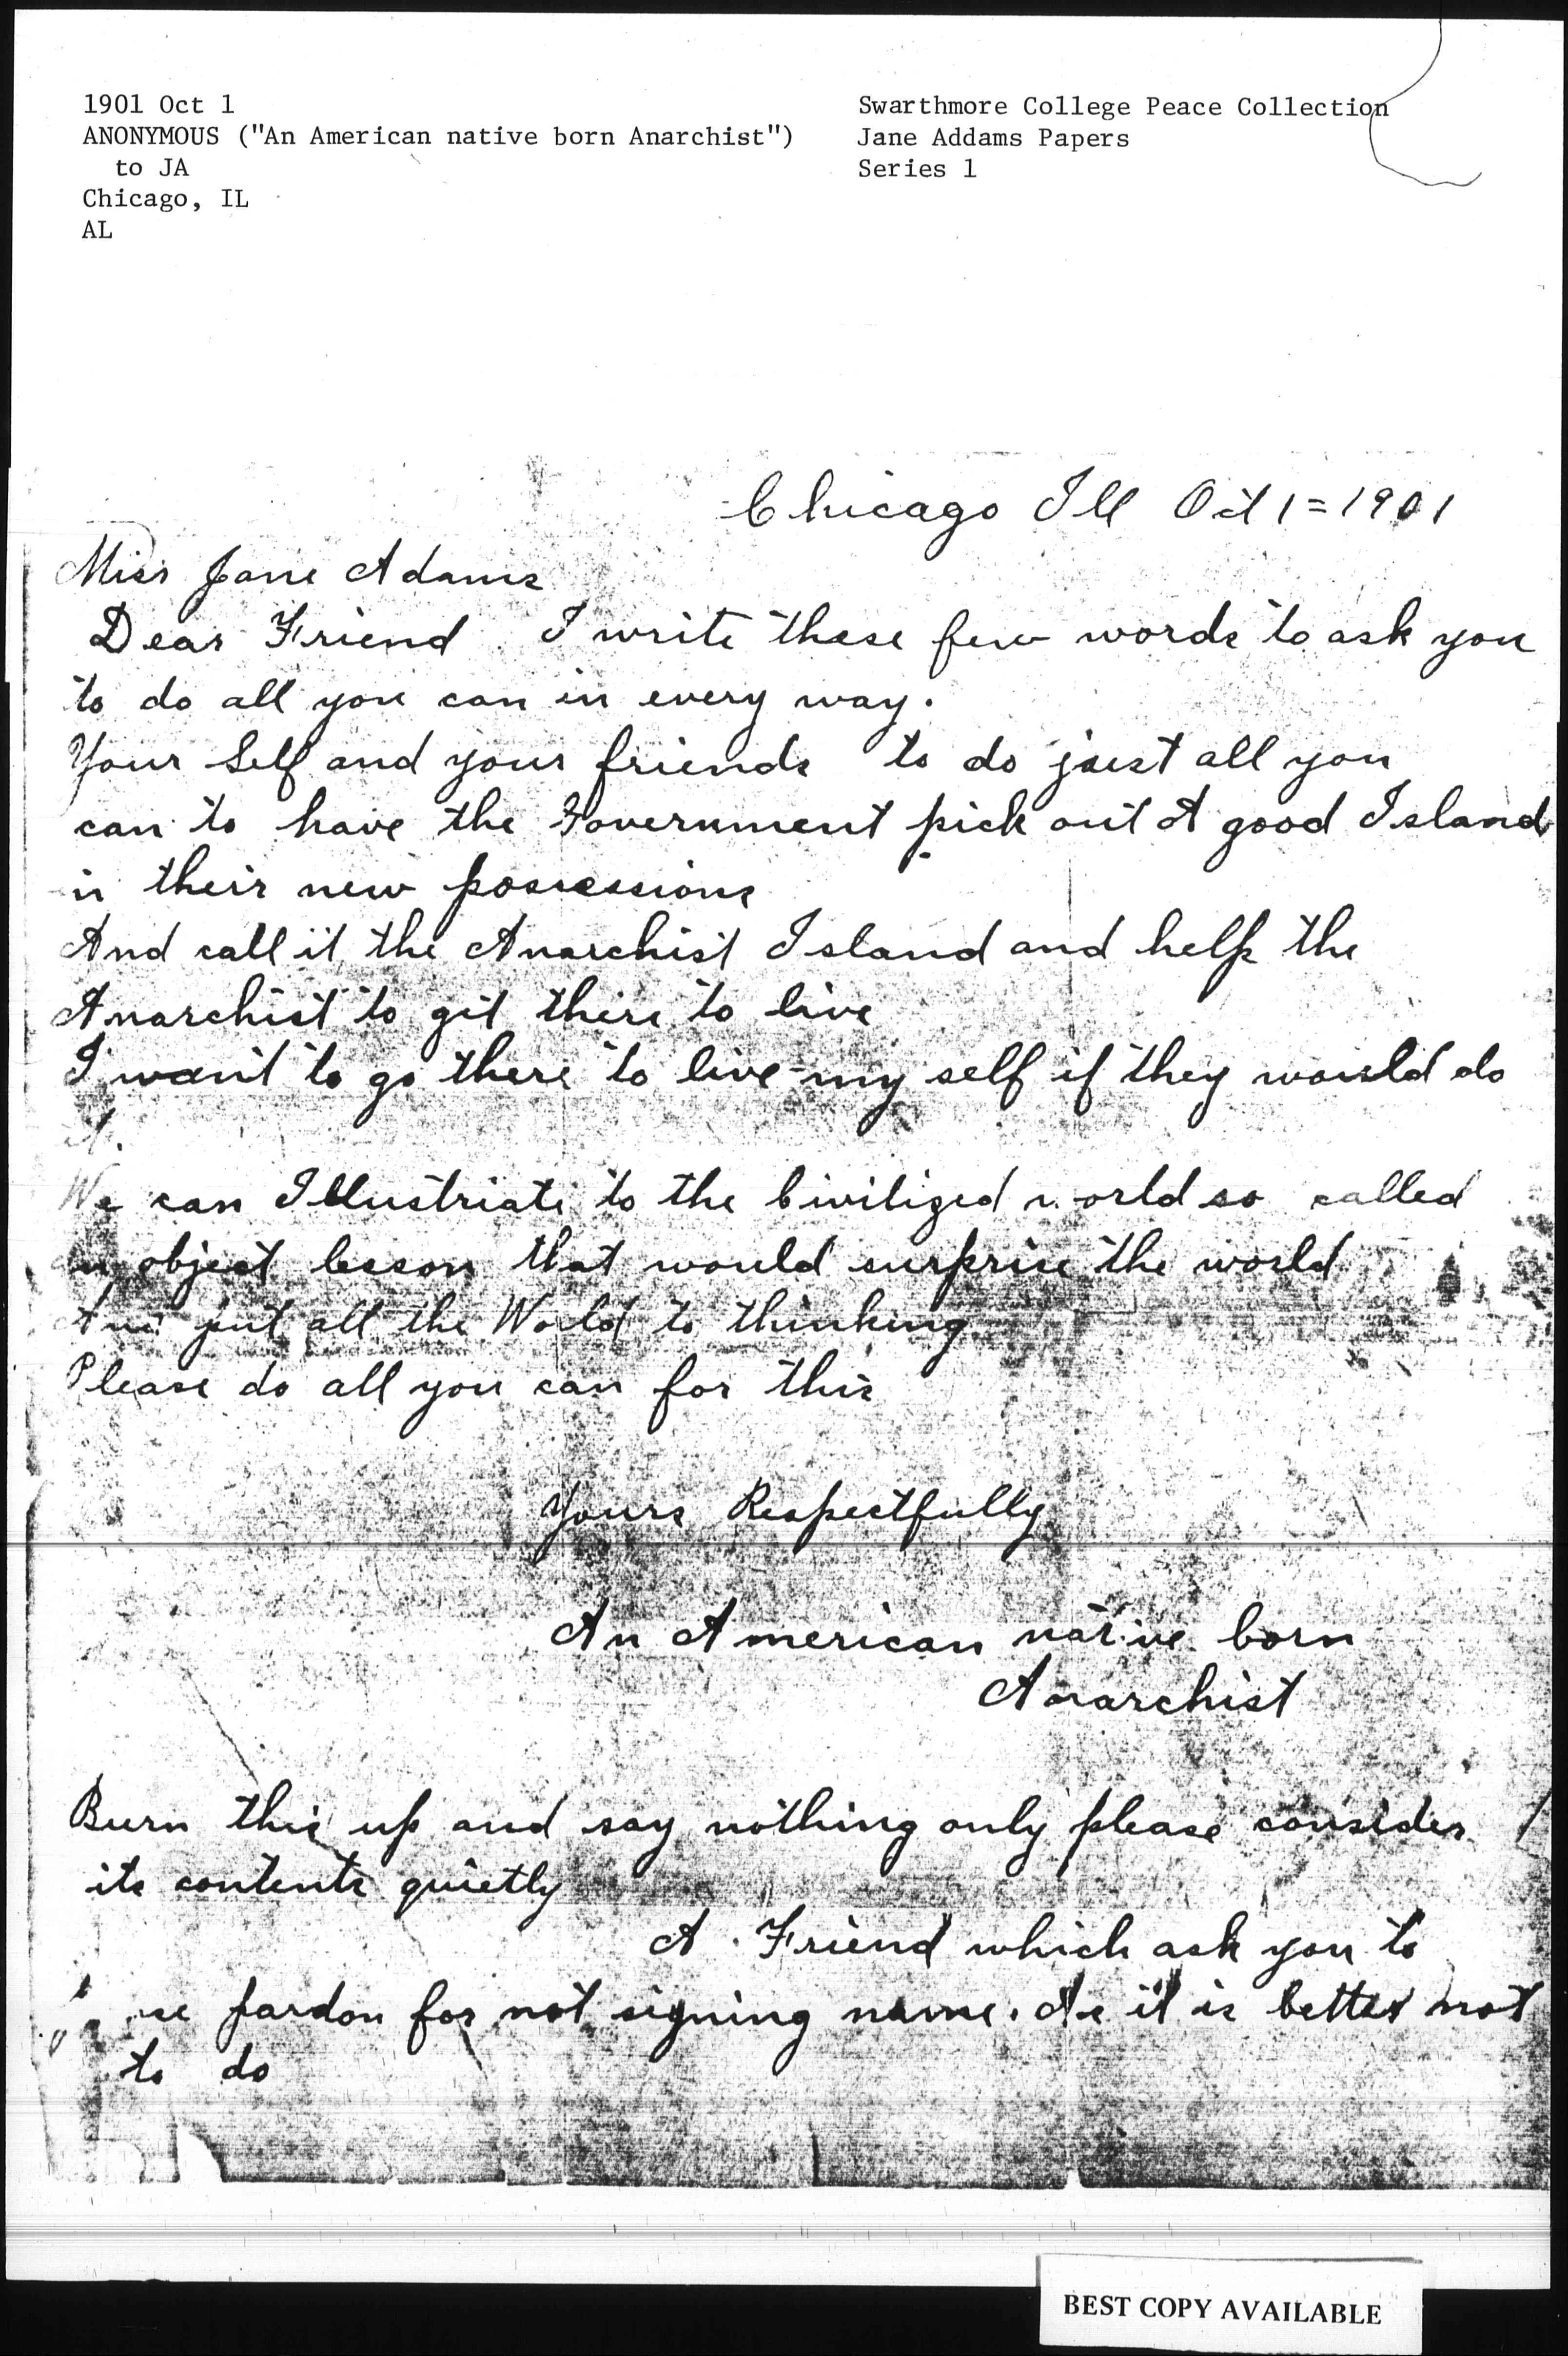 1901 Oct 1
ANONYMOUS ("An American native born Anarchist")
to JA
Chicago, IL
AL
Swarthmore College Peace Collection
Jane Addams Papers
Series 1
Chicago Ill Oct 1=1901
Miss Jane Adams
Dear Friend I write these few words to ask you
to do all you can in every way.
Your Self and your friends to do just all you
can to have the Government pick out A good Island
in their new possessions
And call it the Anarchist Island and help the
Anarchist to git there to live
I want to go there to live my self if they would do
We can Illustriate to the Civilized world so called
An object lesson that would surprise the world
And put all the World to thinking
Please do all you can for this
Yours Respectfully
An American native born
Anarchist
Burn this up and say nothing only please consider
its contents quietly
A Friend which ask you to
pardon for not signing name. As it is better not
to do
BEST COPY AVAILABLE